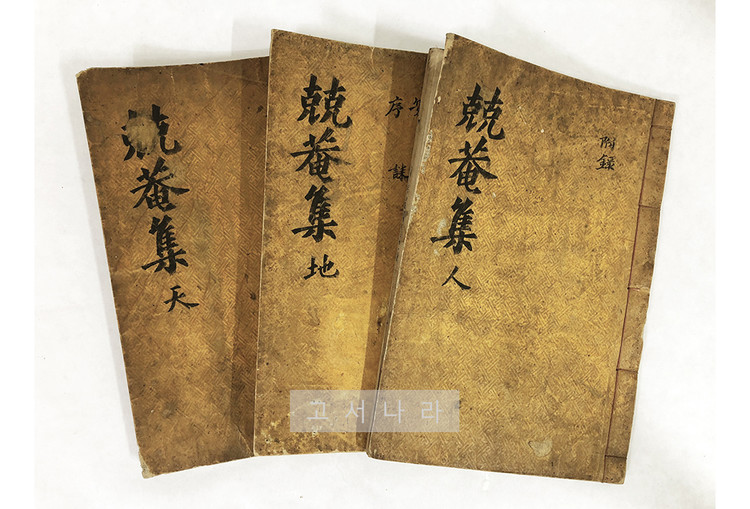 兢菴集 天
兢菴集 地
序
兢菴集 人
附錄
고서나라